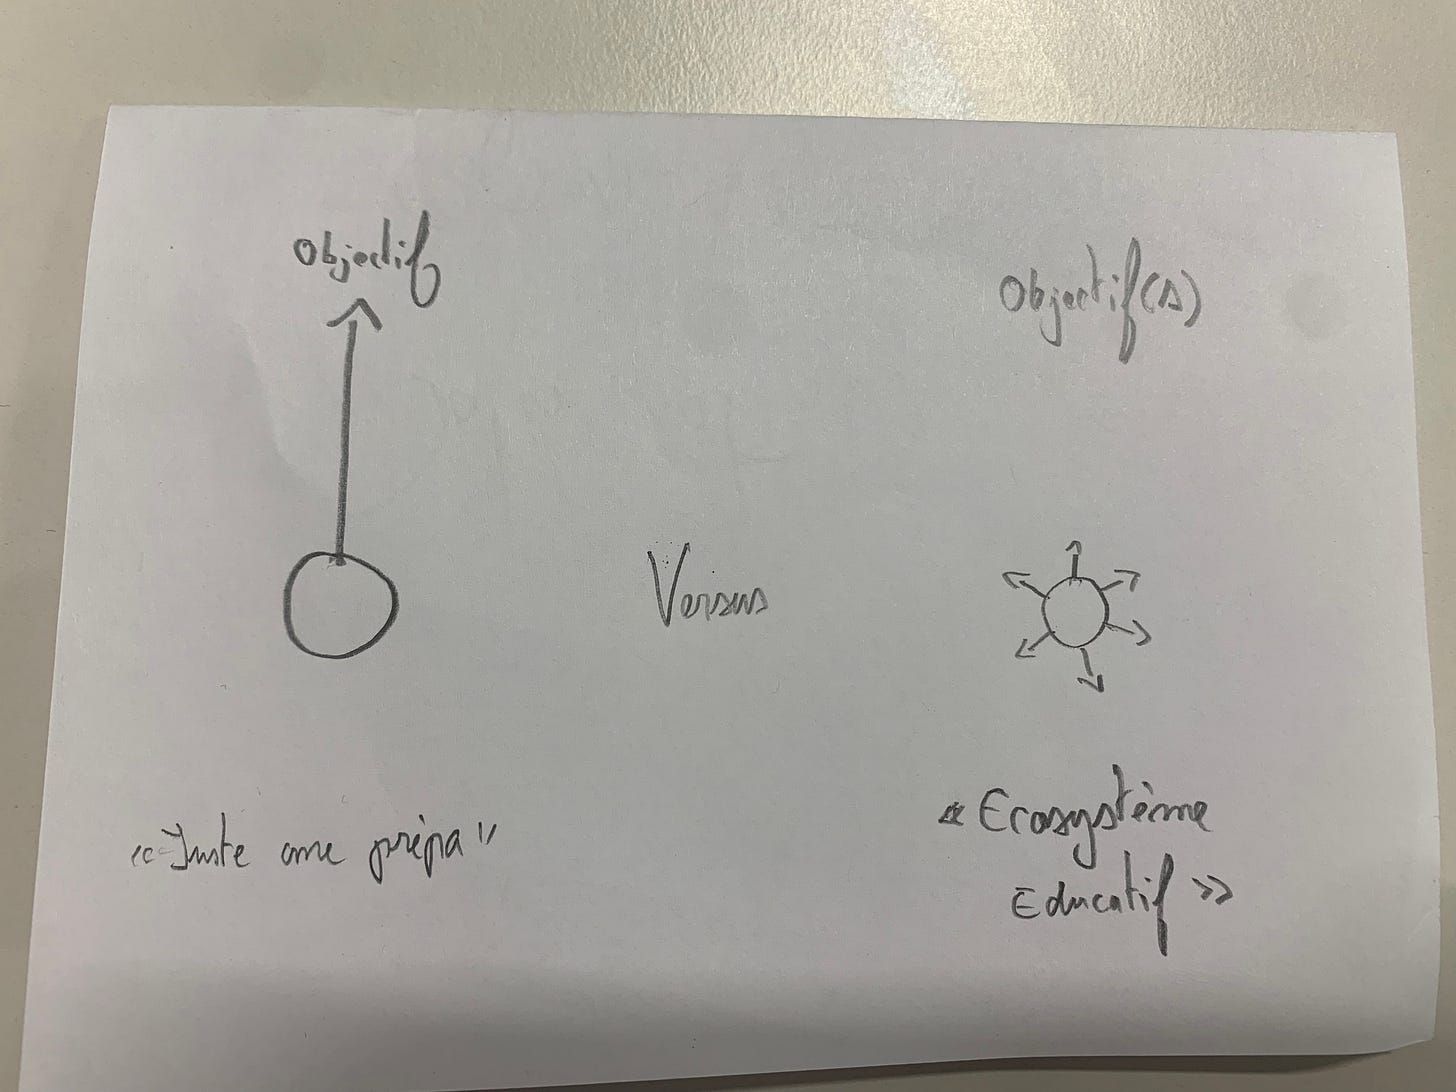 Objectif
Objectif(s)
Versus
"Juste une prépa"
« Ecosystème
Educatif »